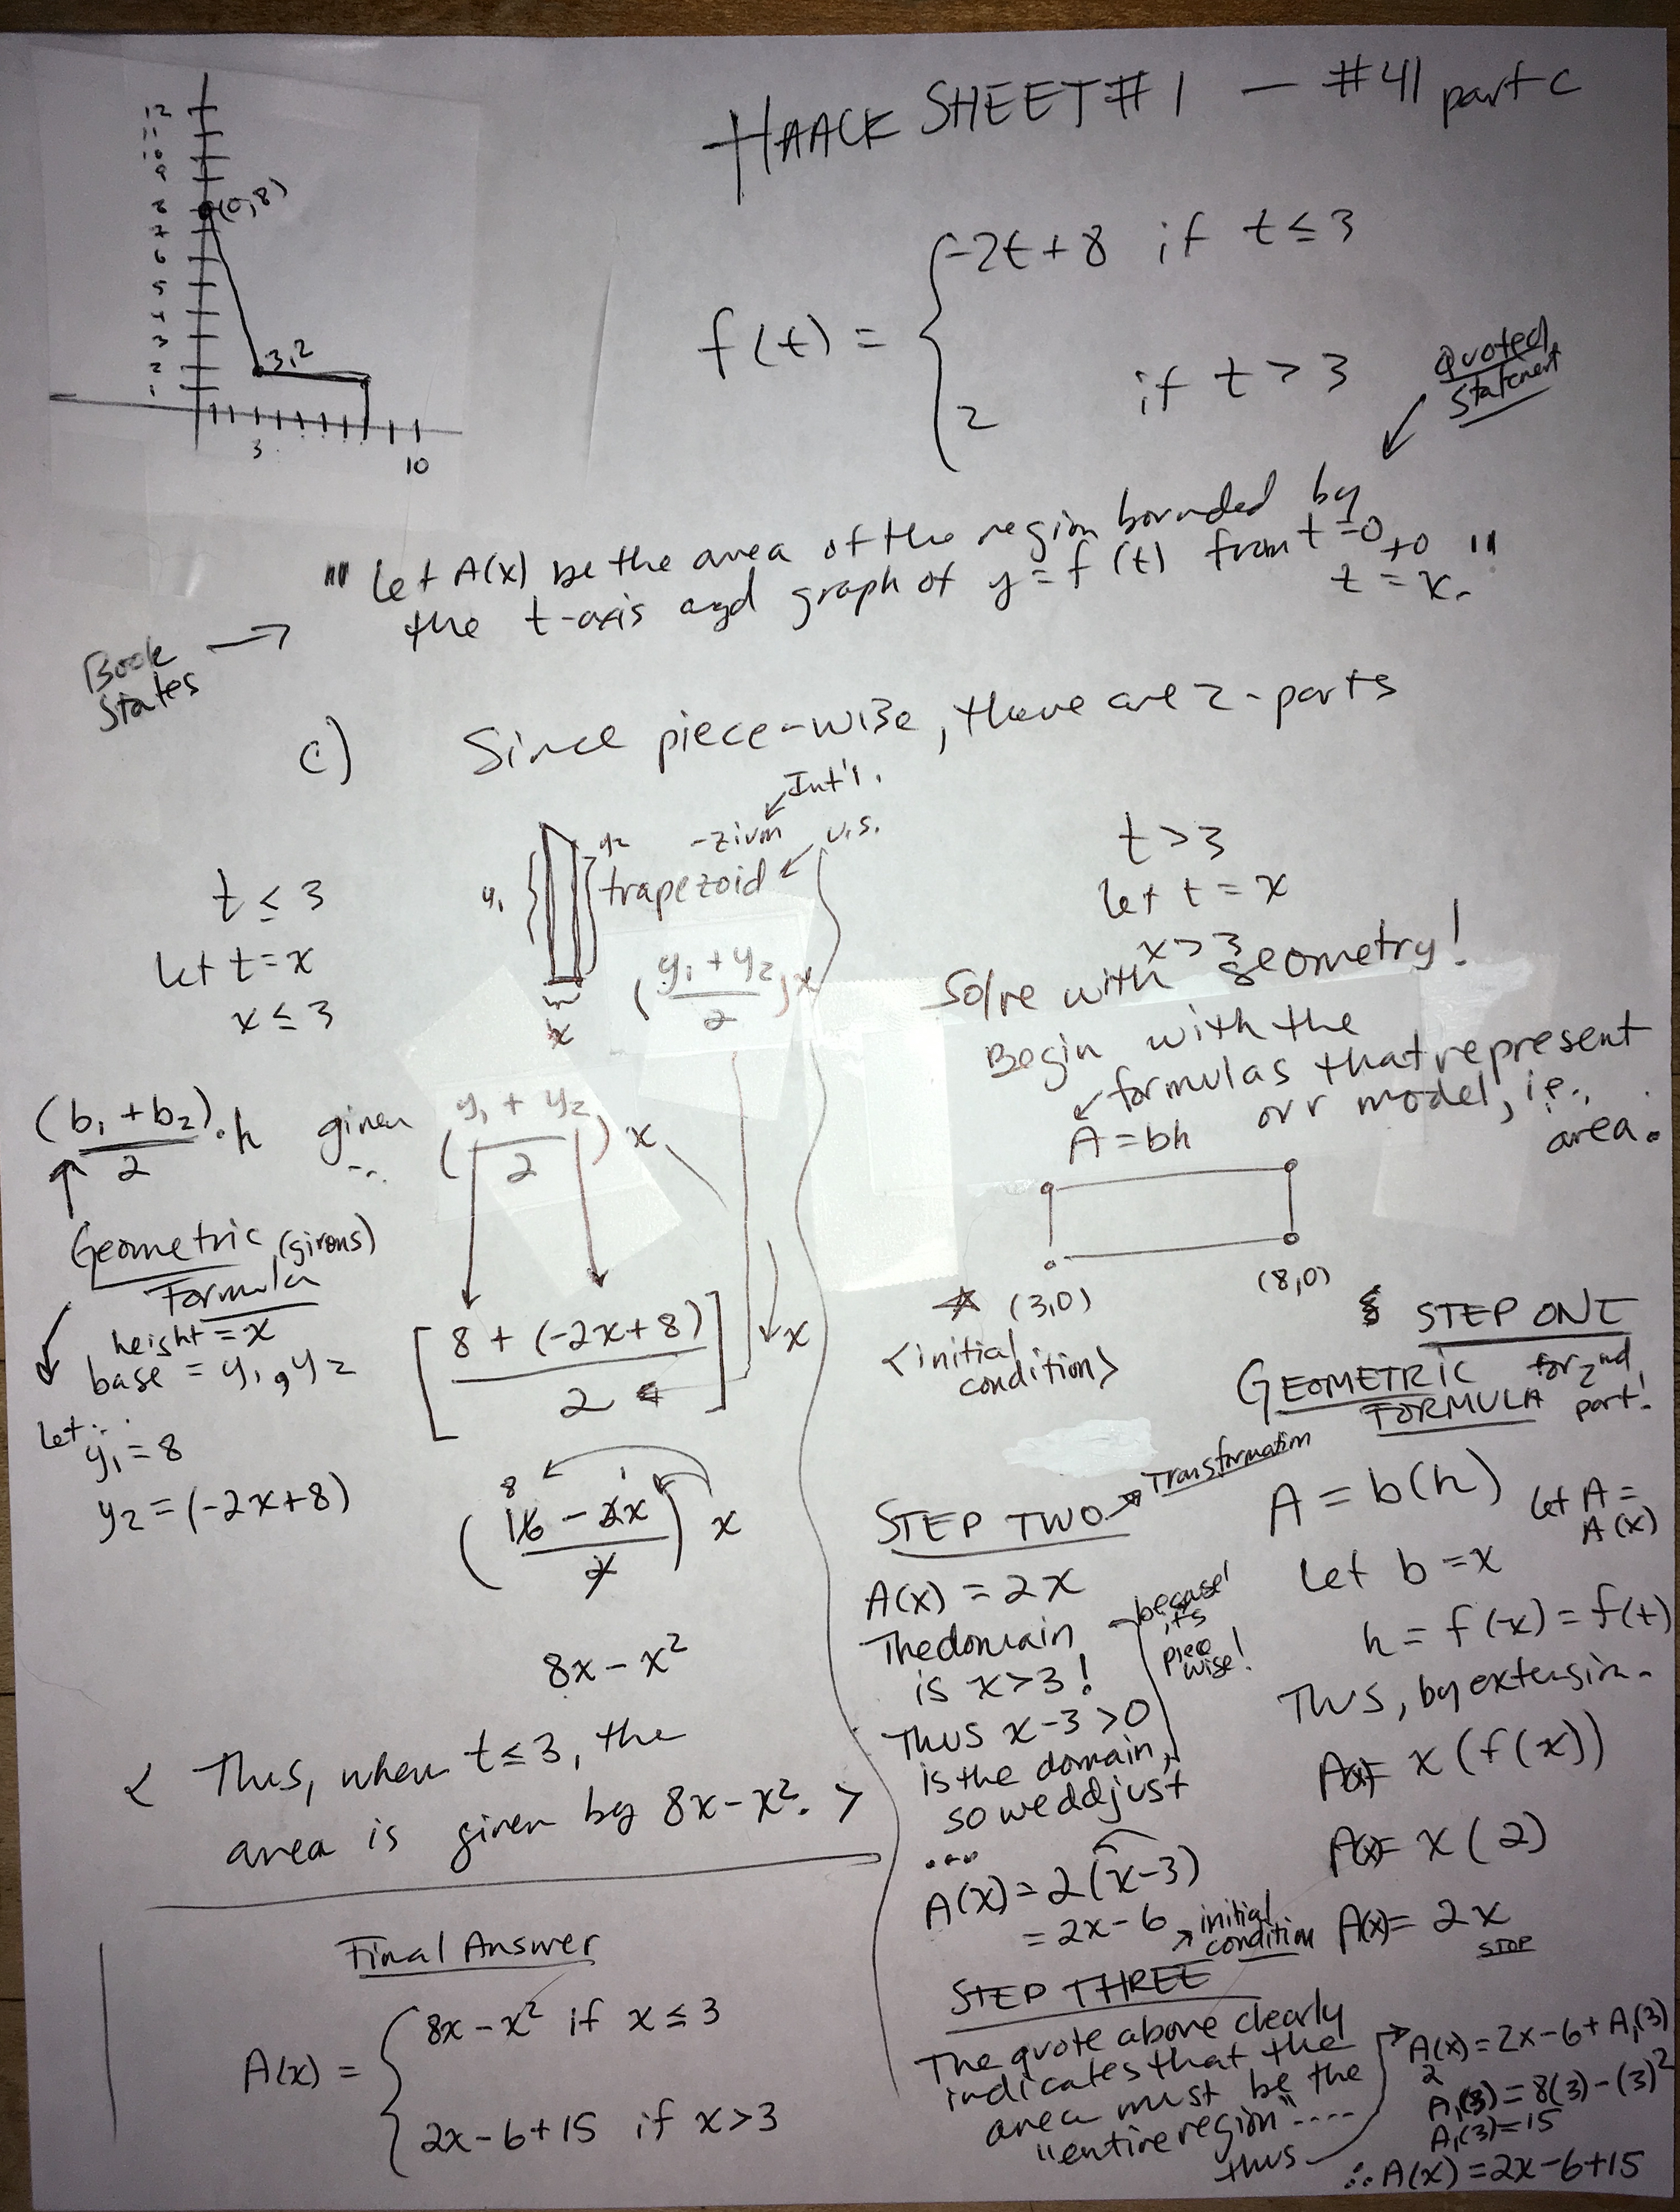 HAACK SHEET #1 — #41 part c
12
11
10
9
8
7
6
5
4
3
2
1
(0,8)
3,2
3
10
f(t) = { -2t+8 if t ≤ 3
2 if t > 3
Quoted
Statement
"" Let A(x) be the area of the region bounded by
the t-axis and graph of y = f(t) from t=0 to
t = x. ""
Book
States
c) Since piece-wise, there are 2-parts
t ≤ 3
let t = x
x ≤ 3
Int'l.
y1
y2
U.S.
trapezoid
x
(y1 + y2 / 2) x
(b1 + b2 / 2) · h given (y1 + y2 / 2) x
Geometric
Formula
height = x
base = y1, y2
Let:
y1 = 8
y2 = (-2x+8)
[8 + (-2x+8) / 2] x
8 1
(16 - 2x / 2) x
8x - x²
< Thus, when t ≤ 3, the
area is given by 8x - x². >
Final Answer
A(x) = { 8x - x² if x ≤ 3
2x - 6 + 15 if x > 3
t > 3
let t = x
x > 3
Solve with geometry!
Begin with the
formulas that represent
our model, i.e.,
area.
A = bh
(3,0)
(8,0)
<initial
condition>
STEP ONE
GEOMETRIC for 2nd
FORMULA part!
A = b(h) let A =
A(x)
Let b = x
h = f(x) = f(t)
Thus, by extension.
A(x)= x(f(x))
A(x)= x(2)
A(x)= 2x
STOP
STEP TWO → Transformation
A(x) = 2x
The domain
is x>3!
because
it's
piece
wise!
Thus x-3 >0
is the domain,
so we adjust
...
A(x) = 2(x-3)
= 2x - 6
initial
condition
STEP THREE
The quote above clearly
indicates that the
area must be the
"entire region"....
thus
A2(x) = 2x-6+A1(3)
A1(3) = 8(3)-(3)²
A1(3) = 15
∴ A(x) = 2x-6+15